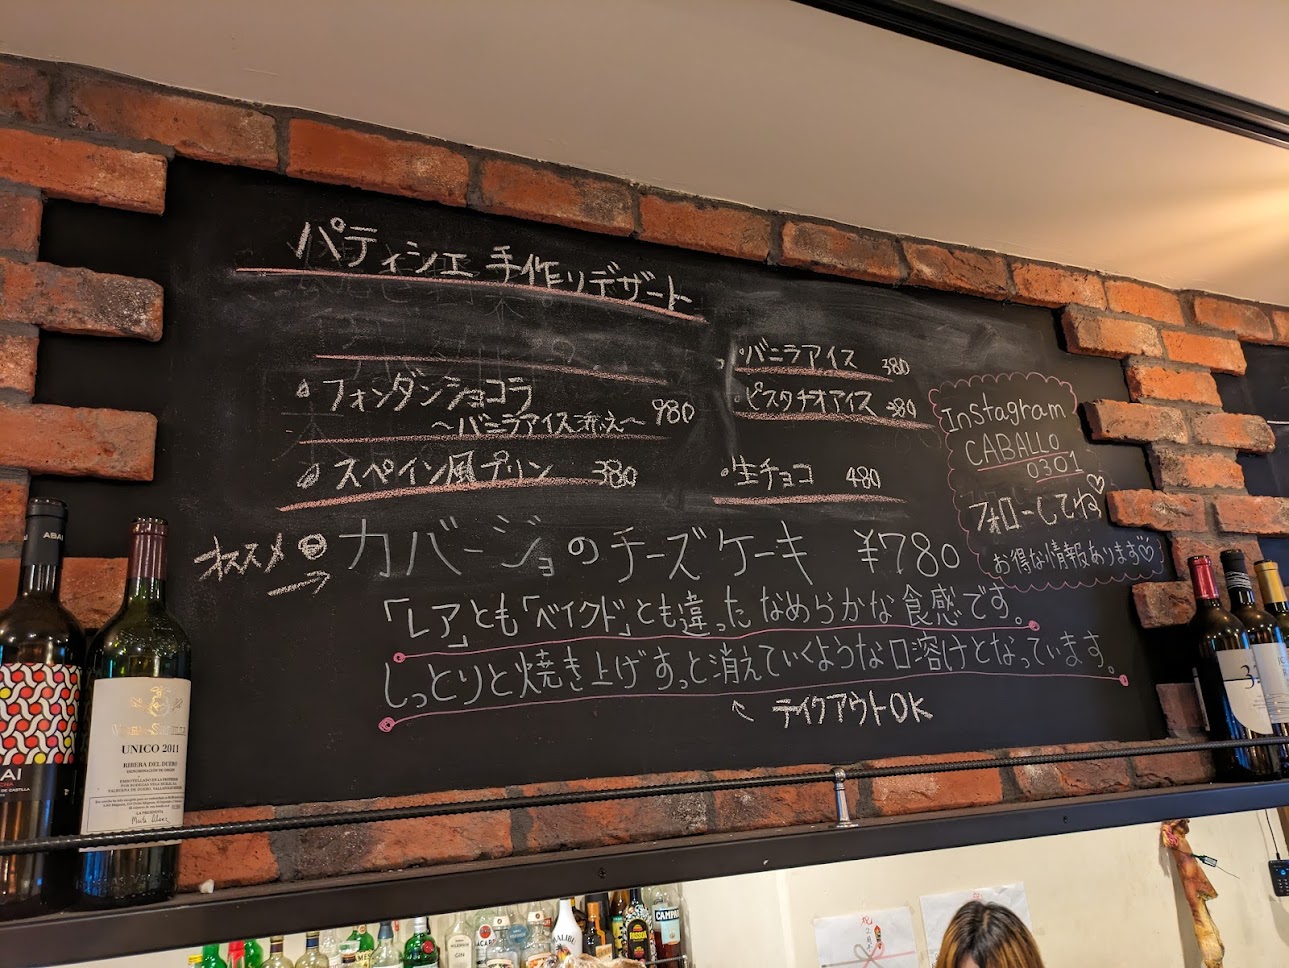 パティシエ 手作りデザート
フォンダンショコラ
～バニラアイス添え～ 980
スペイン風プリン 380
バニラアイス 380
ピスタチオアイス 380
生チョコ 480
オススメ カバージョのチーズケーキ ¥780
「レア」とも「ベイクド」とも違ったなめらかな食感です。
しっとりと焼き上げすっと消えていくような口溶けとなっています。
テイクアウトOK
Instagram
CABALLO
0301
フォローしてね♡
お得な情報あります♡
ABAI
AI
UNICO 2011
RIBERA DEL DUERO
CAMPARI
GIN
祝